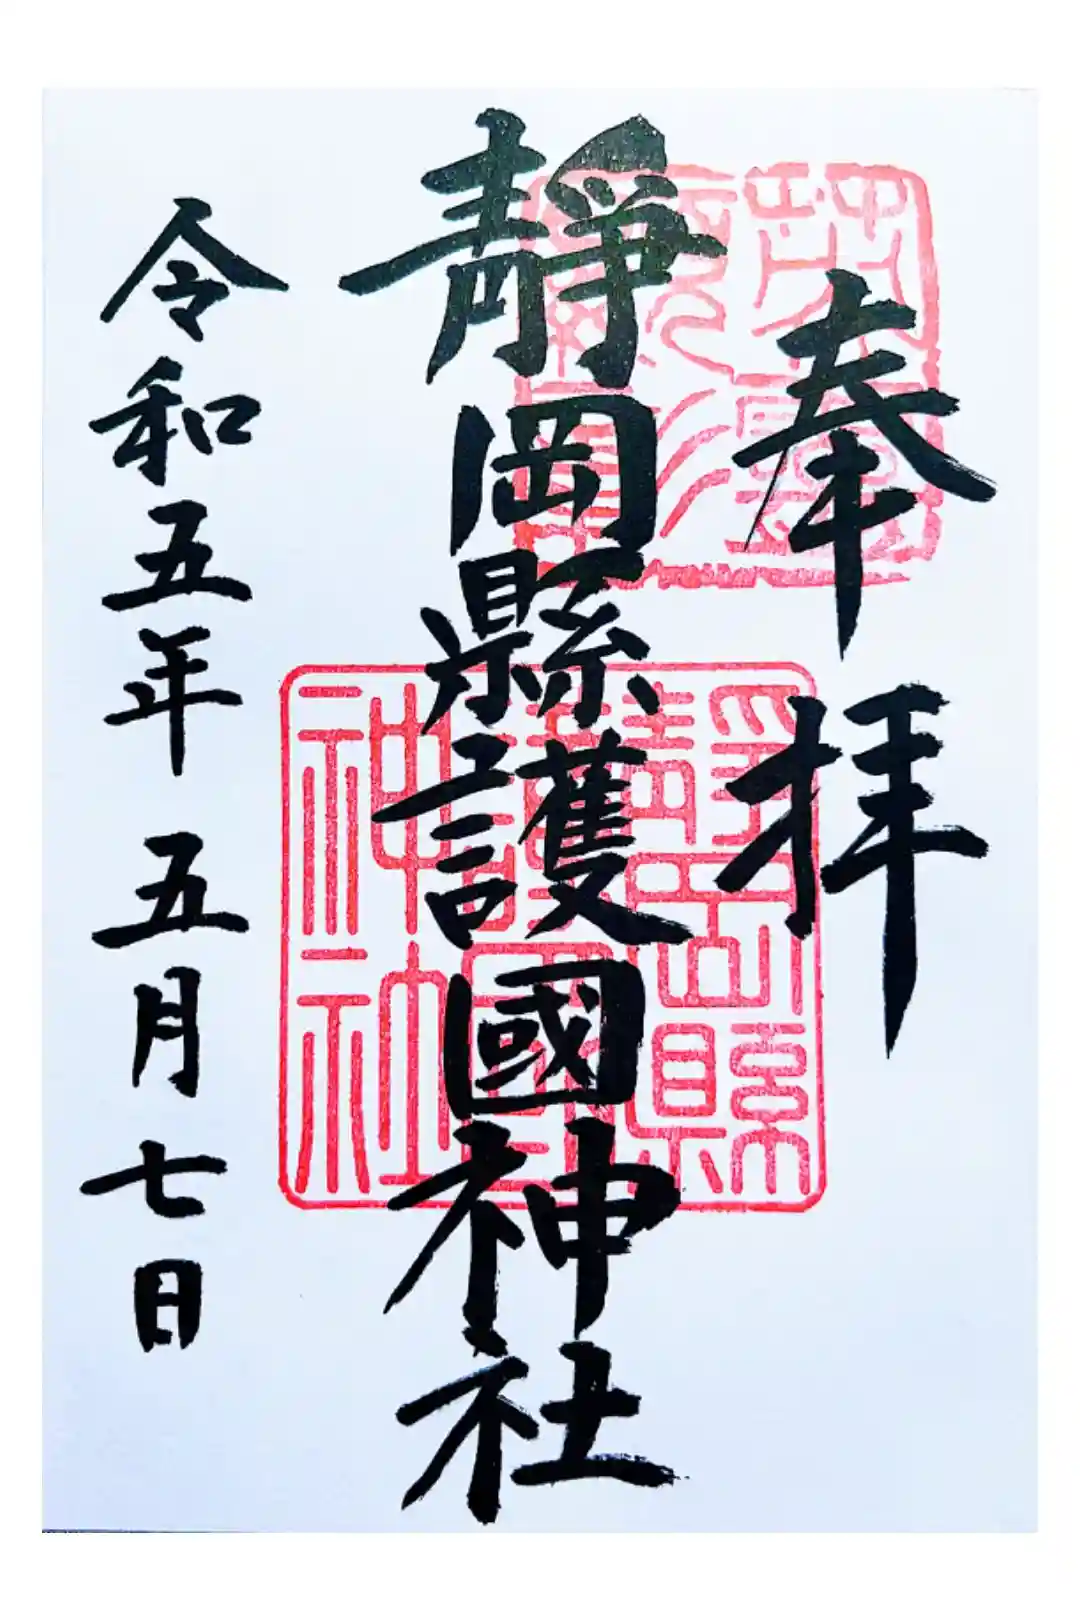 奉拝
靜岡縣護國神社
靜岡縣護國神社
令和五年五月七日